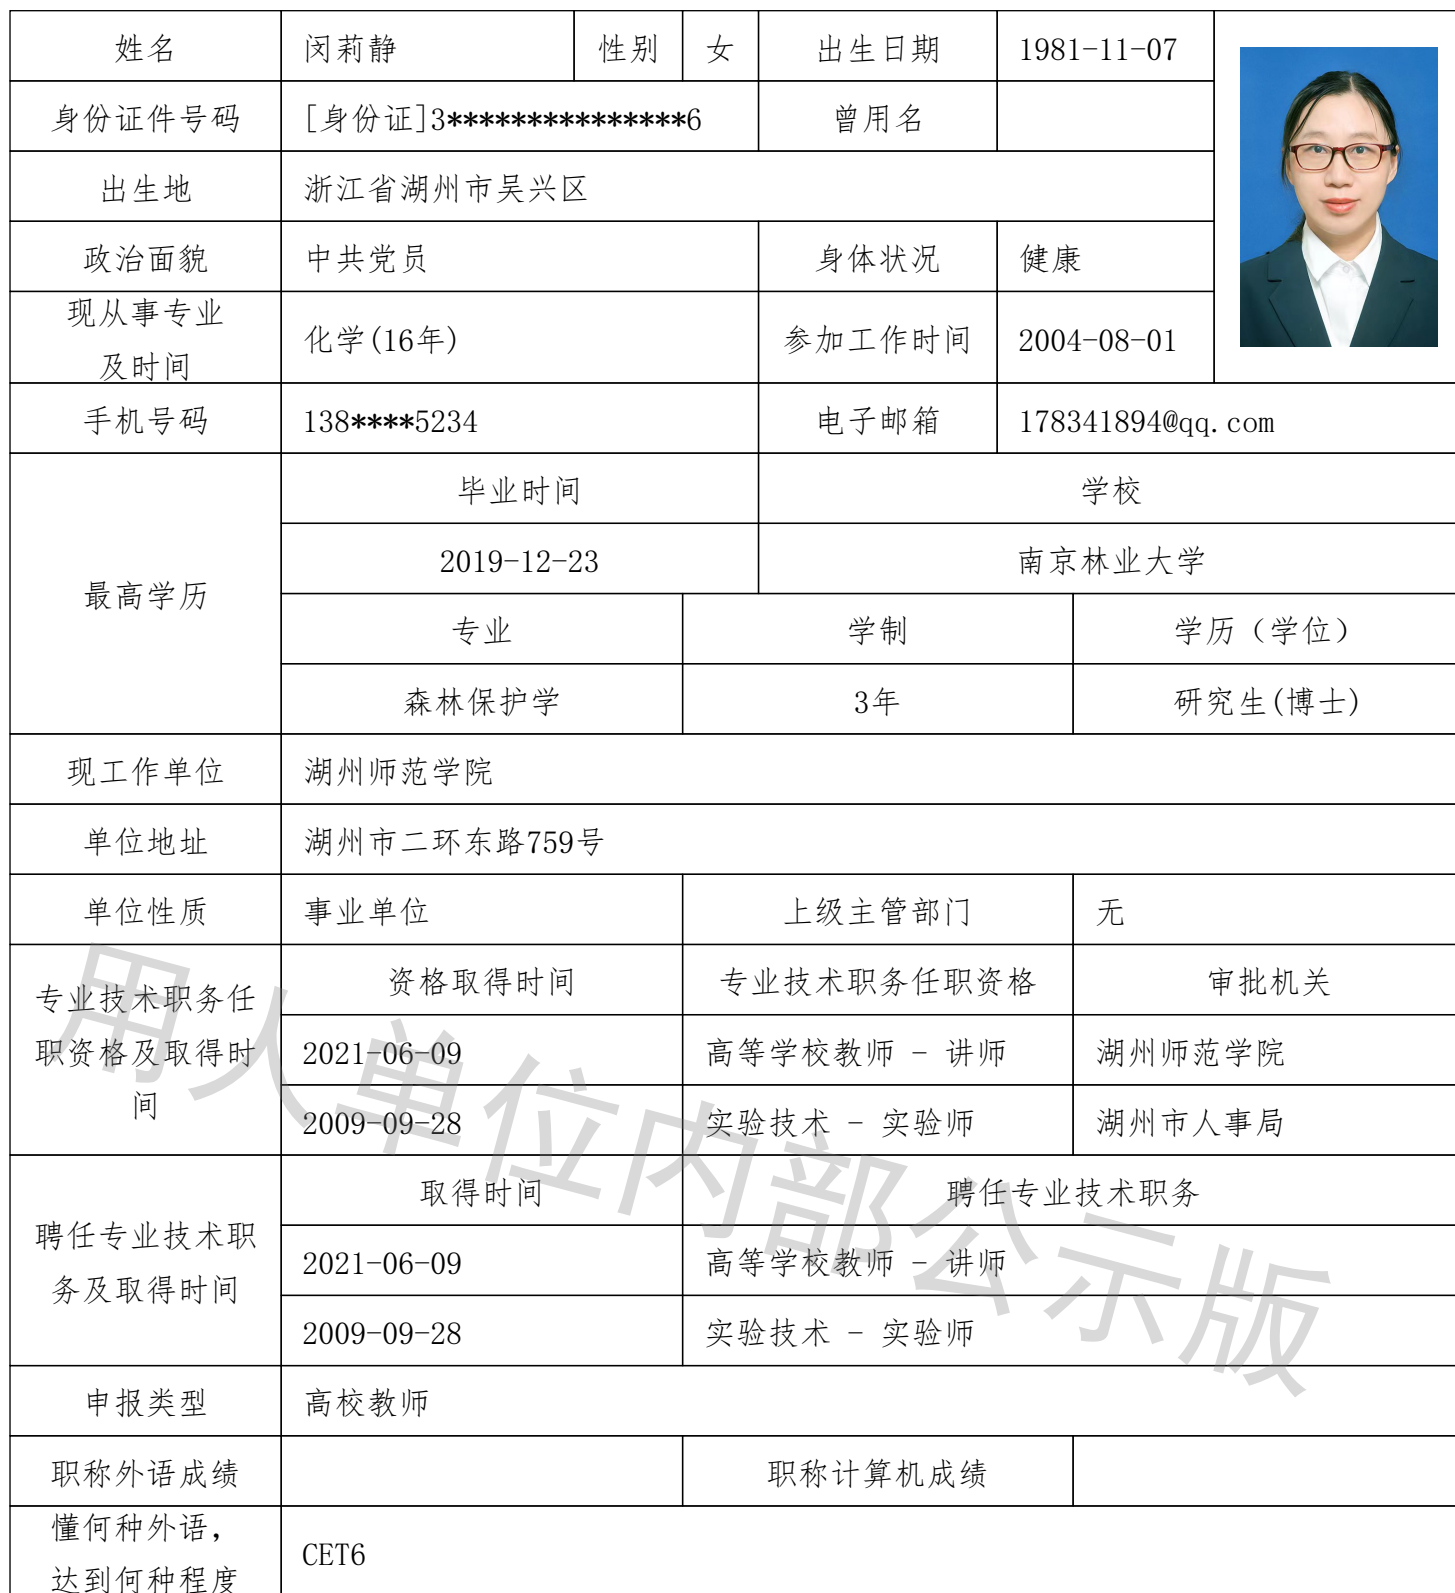 姓名 闵莉静 性别 女 出生日期 1981-11-07
身份证件号码 [身份证]3***************6 曾用名
出生地 浙江省湖州市吴兴区
政治面貌 中共党员 身体状况 健康
现从事专业
及时间 化学(16年) 参加工作时间 2004-08-01
手机号码 138****5234 电子邮箱 178341894@qq.com
最高学历
毕业时间 学校
2019-12-23 南京林业大学
专业 学制 学历（学位）
森林保护学 3年 研究生(博士)
现工作单位 湖州师范学院
单位地址 湖州市二环东路759号
单位性质 事业单位 上级主管部门 无
专业技术职务任
职资格及取得时
间
资格取得时间 专业技术职务任职资格 审批机关
2021-06-09 高等学校教师 - 讲师 湖州师范学院
2009-09-28 实验技术 - 实验师 湖州市人事局
聘任专业技术职
务及取得时间
取得时间 聘任专业技术职务
2021-06-09 高等学校教师 - 讲师
2009-09-28 实验技术 - 实验师
申报类型 高校教师
职称外语成绩 职称计算机成绩
懂何种外语，
达到何种程度 CET6
用人单位内部公示版